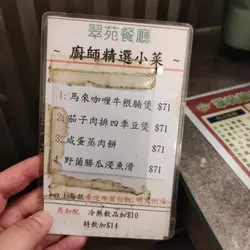 翠苑餐廳
~ 廚師精選小菜 ~
1: 馬來咖喱牛根腩煲 $71
2: 茄子肉排四季豆煲 $71
3: 咸蛋蒸肉餅 $71
4: 野菌勝瓜浸魚滑 $71
另加配 冷熱飲品加$10
特飲加$14